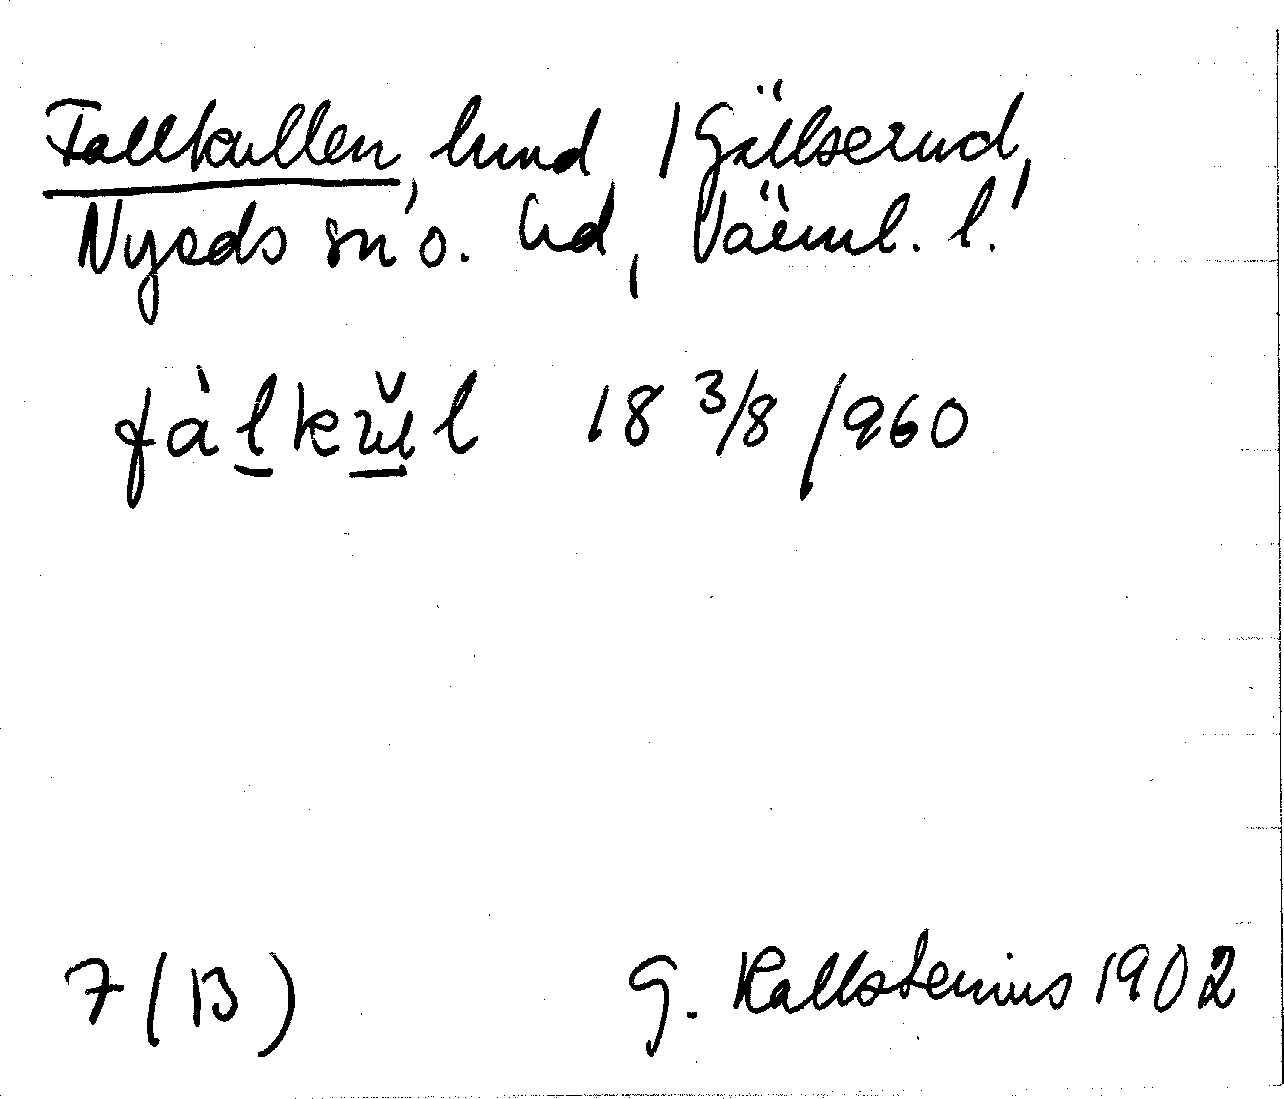 Fallkullen, lund, / Gällserud,
Nyeds sn o. hd, Värml. l.
fàl̠kŭ̠l 18 3/8 /960
7 (B) G. Kallstenius 1902